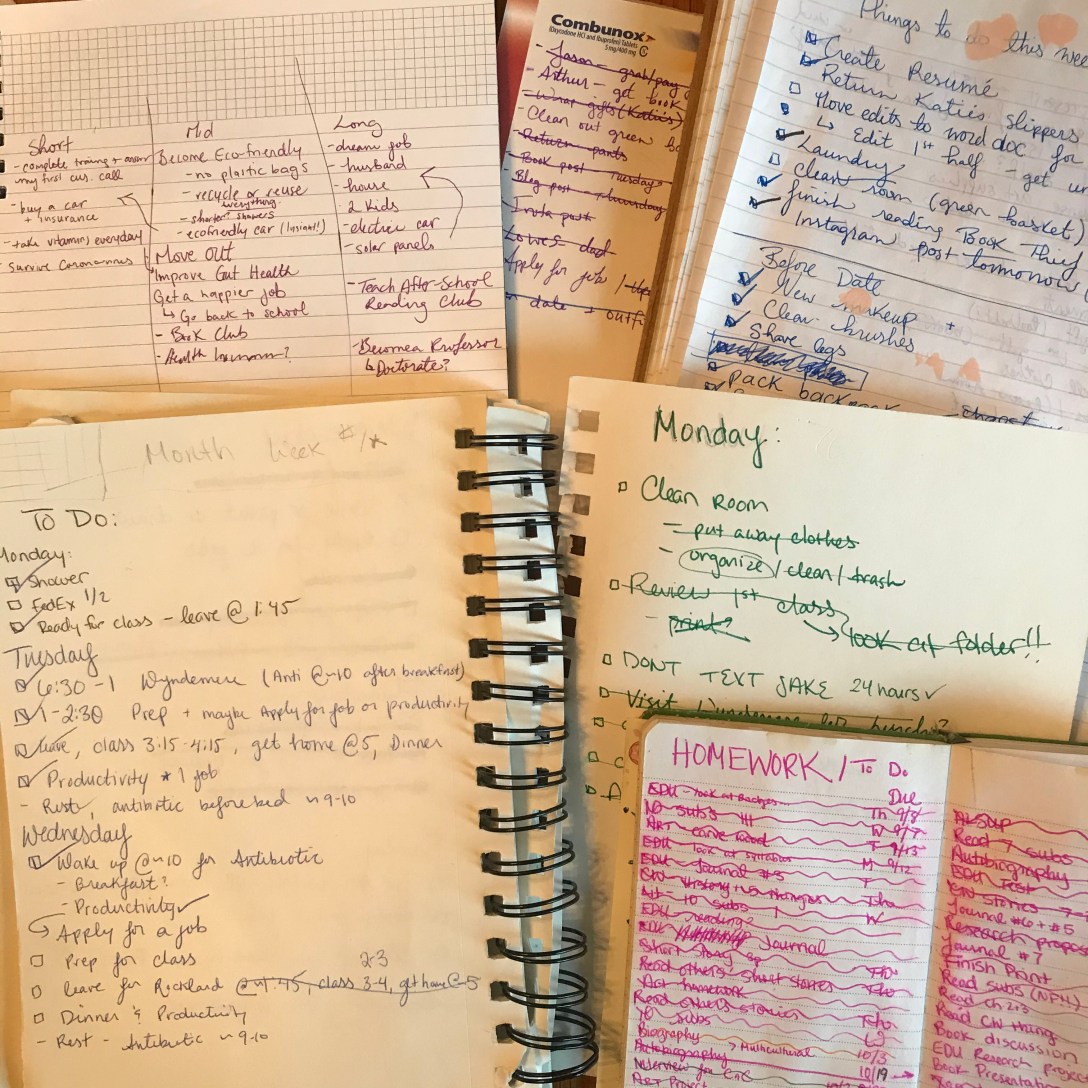 Short
- complete training + answer
my first cus. call
- buy a car
+ insurance
- take vitamins everyday
- survive Coronavirus
Mid
Become Eco-friendly
- no plaitic bags
- recycle or reuse
everything
- shorter showers
- ecofriendly car (Insight!)
Move Out
Improve Gut Health
Get a happier job
↳ Go back to school
- Book Club
- Health
Long
- dream job
- husband
- house
- 2 kids
- electric car
- solar panels
- Teach After-School
Reading Club
- Become a Professor
↳ Doctorate?
Combunox
(Oxycodone HCl and Ibuprofen) Tablets
5 mg/400 mg
- Jason - grab/pay
- Arthur - get book
- What gifts (Katie's)
- Clean out green
- Return pants
- Book post Tuesday
- Blog post - Thursday
- Insta post
Lowes dad
Apply for job /
date + outfi
Things to do this wee
Create Resumé
Return Katie's slippers
Move edits to word doc for
↳ Edit 1st half - get
Laundry
Clean room (green basket)
finish reading Book Thief
Instagram post tommorow
Before Date
New makeup +
Clean brushes
Shave legs
Pack backpack
Month Week #/*
To Do:
Monday:
Shower
FedEx 1/2
Ready for class - leave @ 1:45
Tuesday
6:30 - 1 Wyndemere (Anti @~10 after breakfast)
1 - 2:30 Prep + maybe Apply for job or productivity
leave, class 3:15-4:15, get home @5, Dinner
Productivity * 1 job
- Rest, antibiotic before bed ~ 9-10
Wednesday
Wake up @~10 for Antibiotic
- Breakfast?
- Productivity
Apply for a job
Prep for class
2-3
leave for Rockland @~1:45, class 3-4, get home @~5
Dinner & Productivity
- Rest - Antibiotic ~ 9-10
Monday:
Clean Room
- put away clothes
- organize / clean / trash
Review 1st class
- print
look at folder!!
DONT TEXT JAKE 24 hours
Visit Wyndemere for lunch?
HOMEWORK / To Do
Due
EDU - look at Badges Th 9/8
No subs !!! W 9/7
ART carve wood T 9/13
EDU look at syllabus M 9/12
EDU Journal #3 T
10 subs W
EDU reading
Journal
Short Story
Read others' short stories
Art homework
Read others stories
10 subs
Biography
Autobiography > Multicultural 10/3
Interview for 10/19
Art Project
Read 7 subs
Autobiography
EDU Test
CW stories
Journal #6 + #5
Research propos
Journal #7
Finish Print
Read subs (NPN)
Read Ch 2+3
Read CW thing
Book discussion
EDU Research projec
Book Presentati